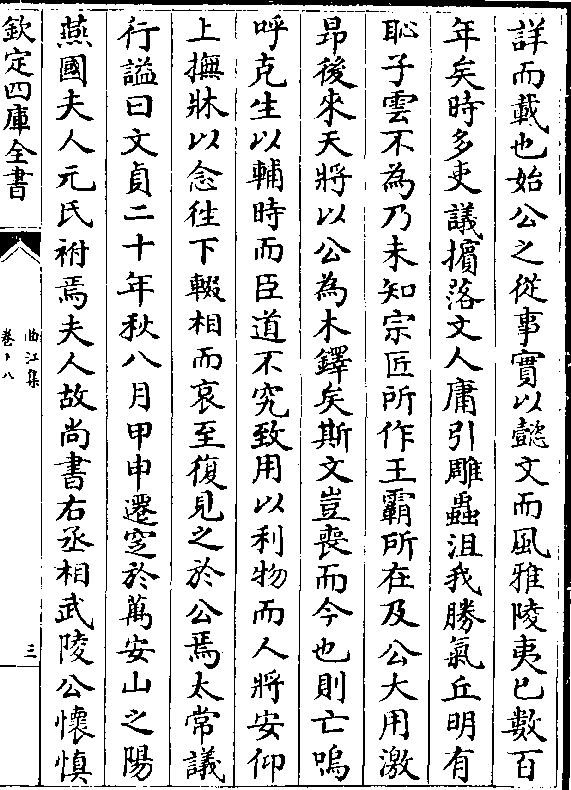 詳而載也始公之從事實以懿文而風雅陵夷已數百
年矣時多吏議擯落文人庸引雕蟲沮我勝氣丘明有
恥子雲不為乃未知宗匠所作王霸所在及公大用激
昂後來天將以公為木鐸矣斯文豈喪而今也則亡嗚
呼克生以輔時而臣道不究致用以利物而人將安仰
上撫牀以念往下輟相而哀至復見之於公焉太常議
行謚曰文貞二十年秋八月甲申遷窆於萬安山之陽
燕國夫人元氏祔焉夫人故尚書右丞相武陵公懷慎
欽定四庫全書
曲江集
卷十八
三